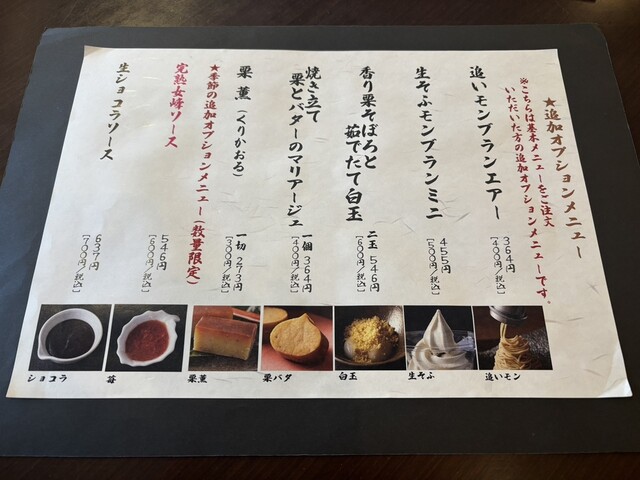 ★追加オプションメニュー
※こちらは基本メニューをご注文
いただいた方の追加オプションメニューです。
追いモンブランエアー
364円
[400円/税込]
生そふモンブランミニ
455円
[500円/税込]
香り栗そぼろと
茹でたて白玉
二玉 546円
[600円/税込]
焼き立て
栗とバターのマリアージュ
一個 364円
[400円/税込]
栗薫(くりかおる)
一切 273円
[300円/税込]
★季節の追加オプションメニュー(数量限定)
完熟女峰ソース
546円
[600円/税込]
生ショコラソース
637円
[700円/税込]
ショコラ
苺
栗薫
栗バタ
白玉
生そふ
追いモン